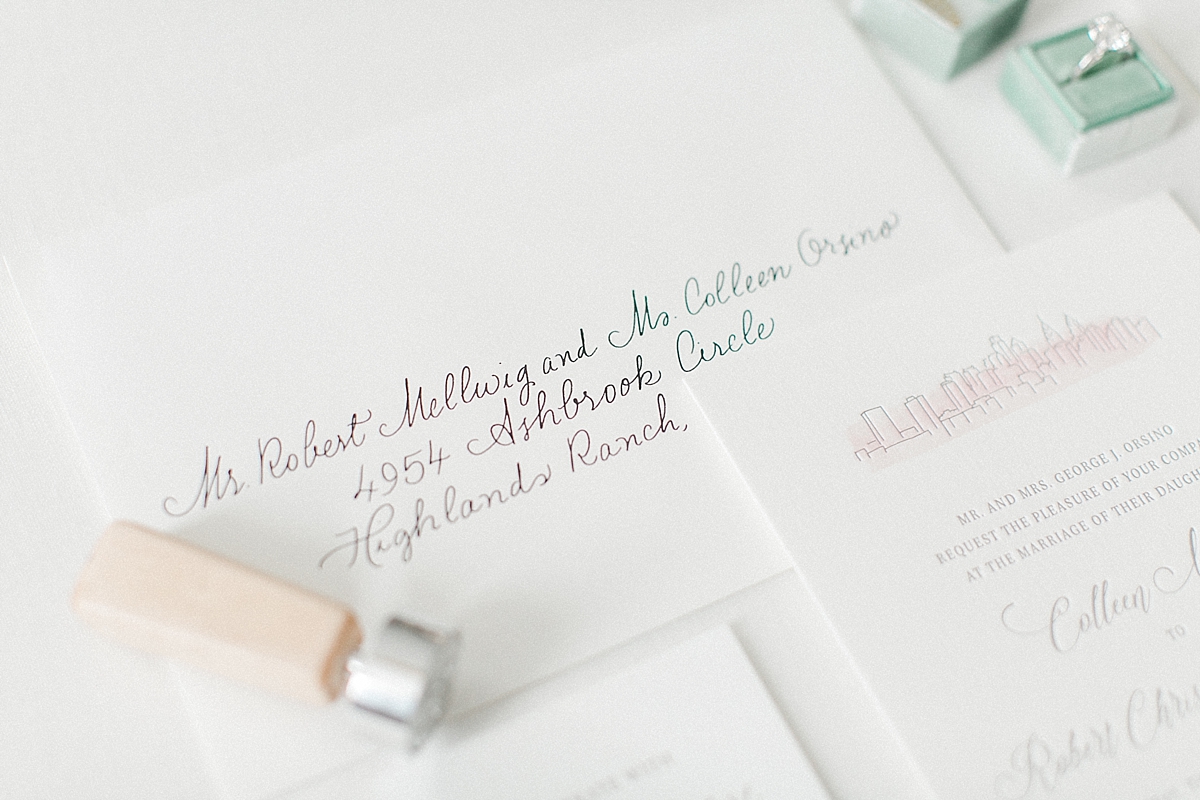 Mr. Robert Mellwig and Ms. Colleen Orsino
4954 Ashbrook Circle
Highlands Ranch,
MR. AND MRS. GEORGE J. ORSINO
REQUEST THE PLEASURE OF YOUR
AT THE MARRIAGE OF THEIR
Colleen
TO
Robert